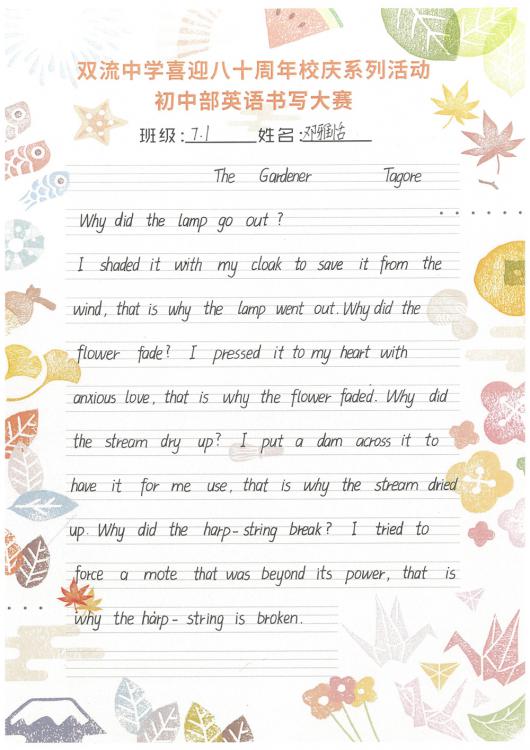 双流中学喜迎八十周年校庆系列活动
初中部英语书写大赛
班级:7.1 姓名:邓雅恬
The Gardener Tagore
Why did the lamp go out ?
I shaded it with my cloak to save it from the
wind, that is why the lamp went out. Why did the
flower fade? I pressed it to my heart with
anxious love, that is why the flower faded. Why did
the stream dry up? I put a dam across it to
have it for me use, that is why the stream dried
up. Why did the harp-string break? I tried to
force a mote that was beyond its power, that is
why the harp-string is broken.